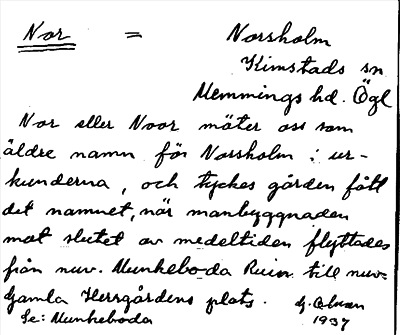 Nor = Norsholm
Kimstads sn
Memmings hd. Ögl
Nor eller Noor möter oss som
äldre namn för Norsholm i ur-
kunderna, och tyckes gården fått
det namnet, när manbyggnaden
mot slutet av medeltiden flyttades
från nuv. Munkeboda Ruin till nuv.
Gamla Herrgårdens plats.
Se: Munkeboda
1937